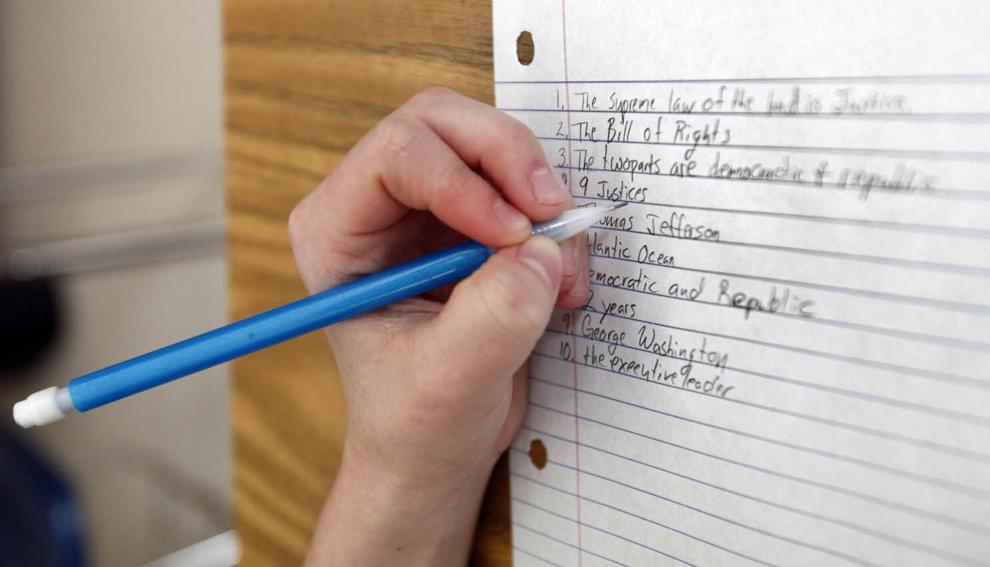 1. The supreme law of the land is Justice.
2. The Bill of Rights
3. The twoparts are democratic & republic
9 Justices
Thomas Jefferson
lantic Ocean
emocratic and Republic
2 years
9. George Washington
10. the executive leader